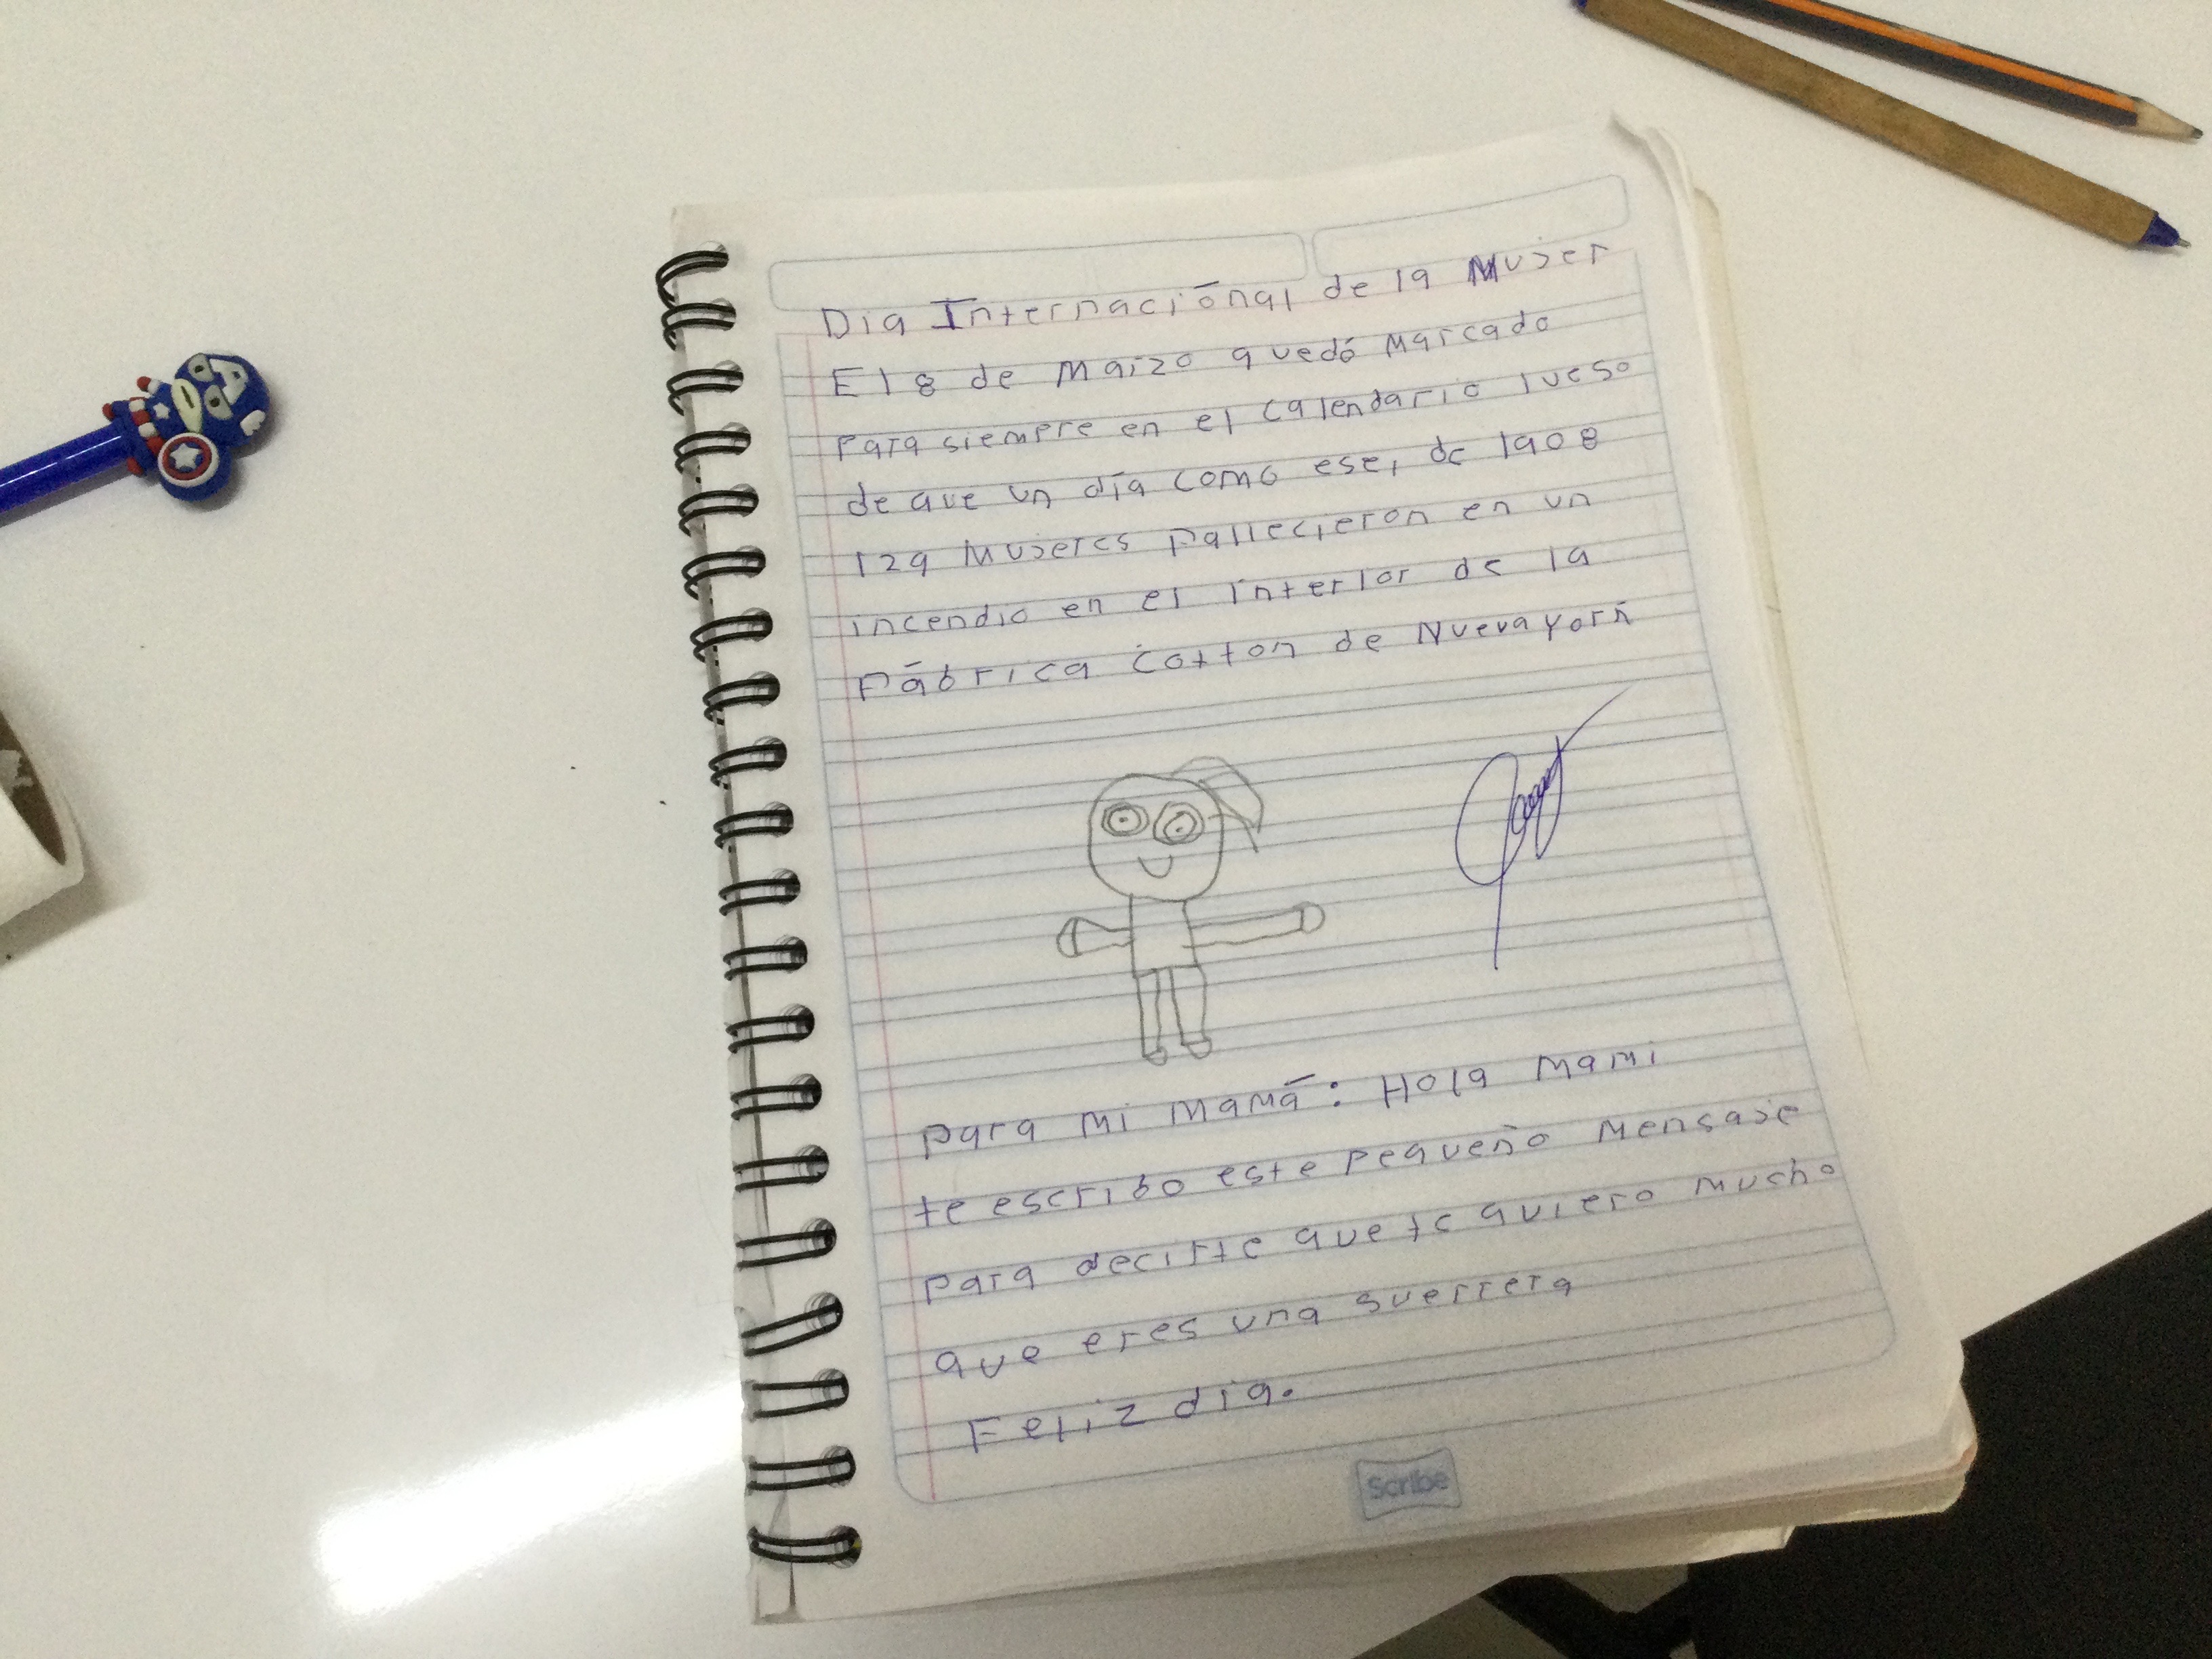 Dia Internaciónal de la Mujer
El 8 de Marzo quedó marcado
para siempre en el calendario luego
de que un día como ese, de 1908
129 Mujeres Fallecieron en un
incendio en el interior de la
Fábrica Cotton de Nueva York
Para mi mamá: Hola Mami
te escribo este pequeño Mensaje
para decirte que te quiero mucho
que eres una guerrera
Feliz dia.
Scribe